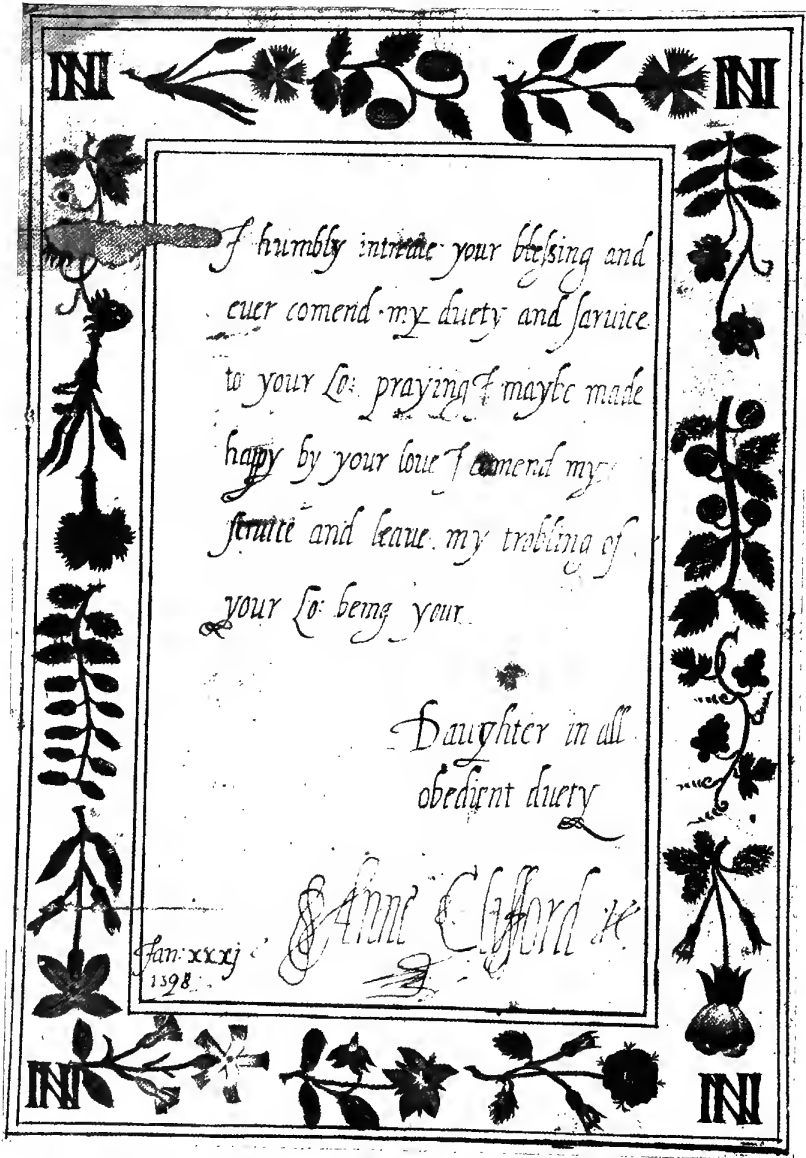 I humbly intreate your blessing and
euer comend my duety and saruice
to your Lo: praying I maybe made
happy by your loue I comend my
seruice and leaue my trobling of
your Lo: being your
Daughter in all
obedient duety
Anne Clifford
Jan: xxxj
1598